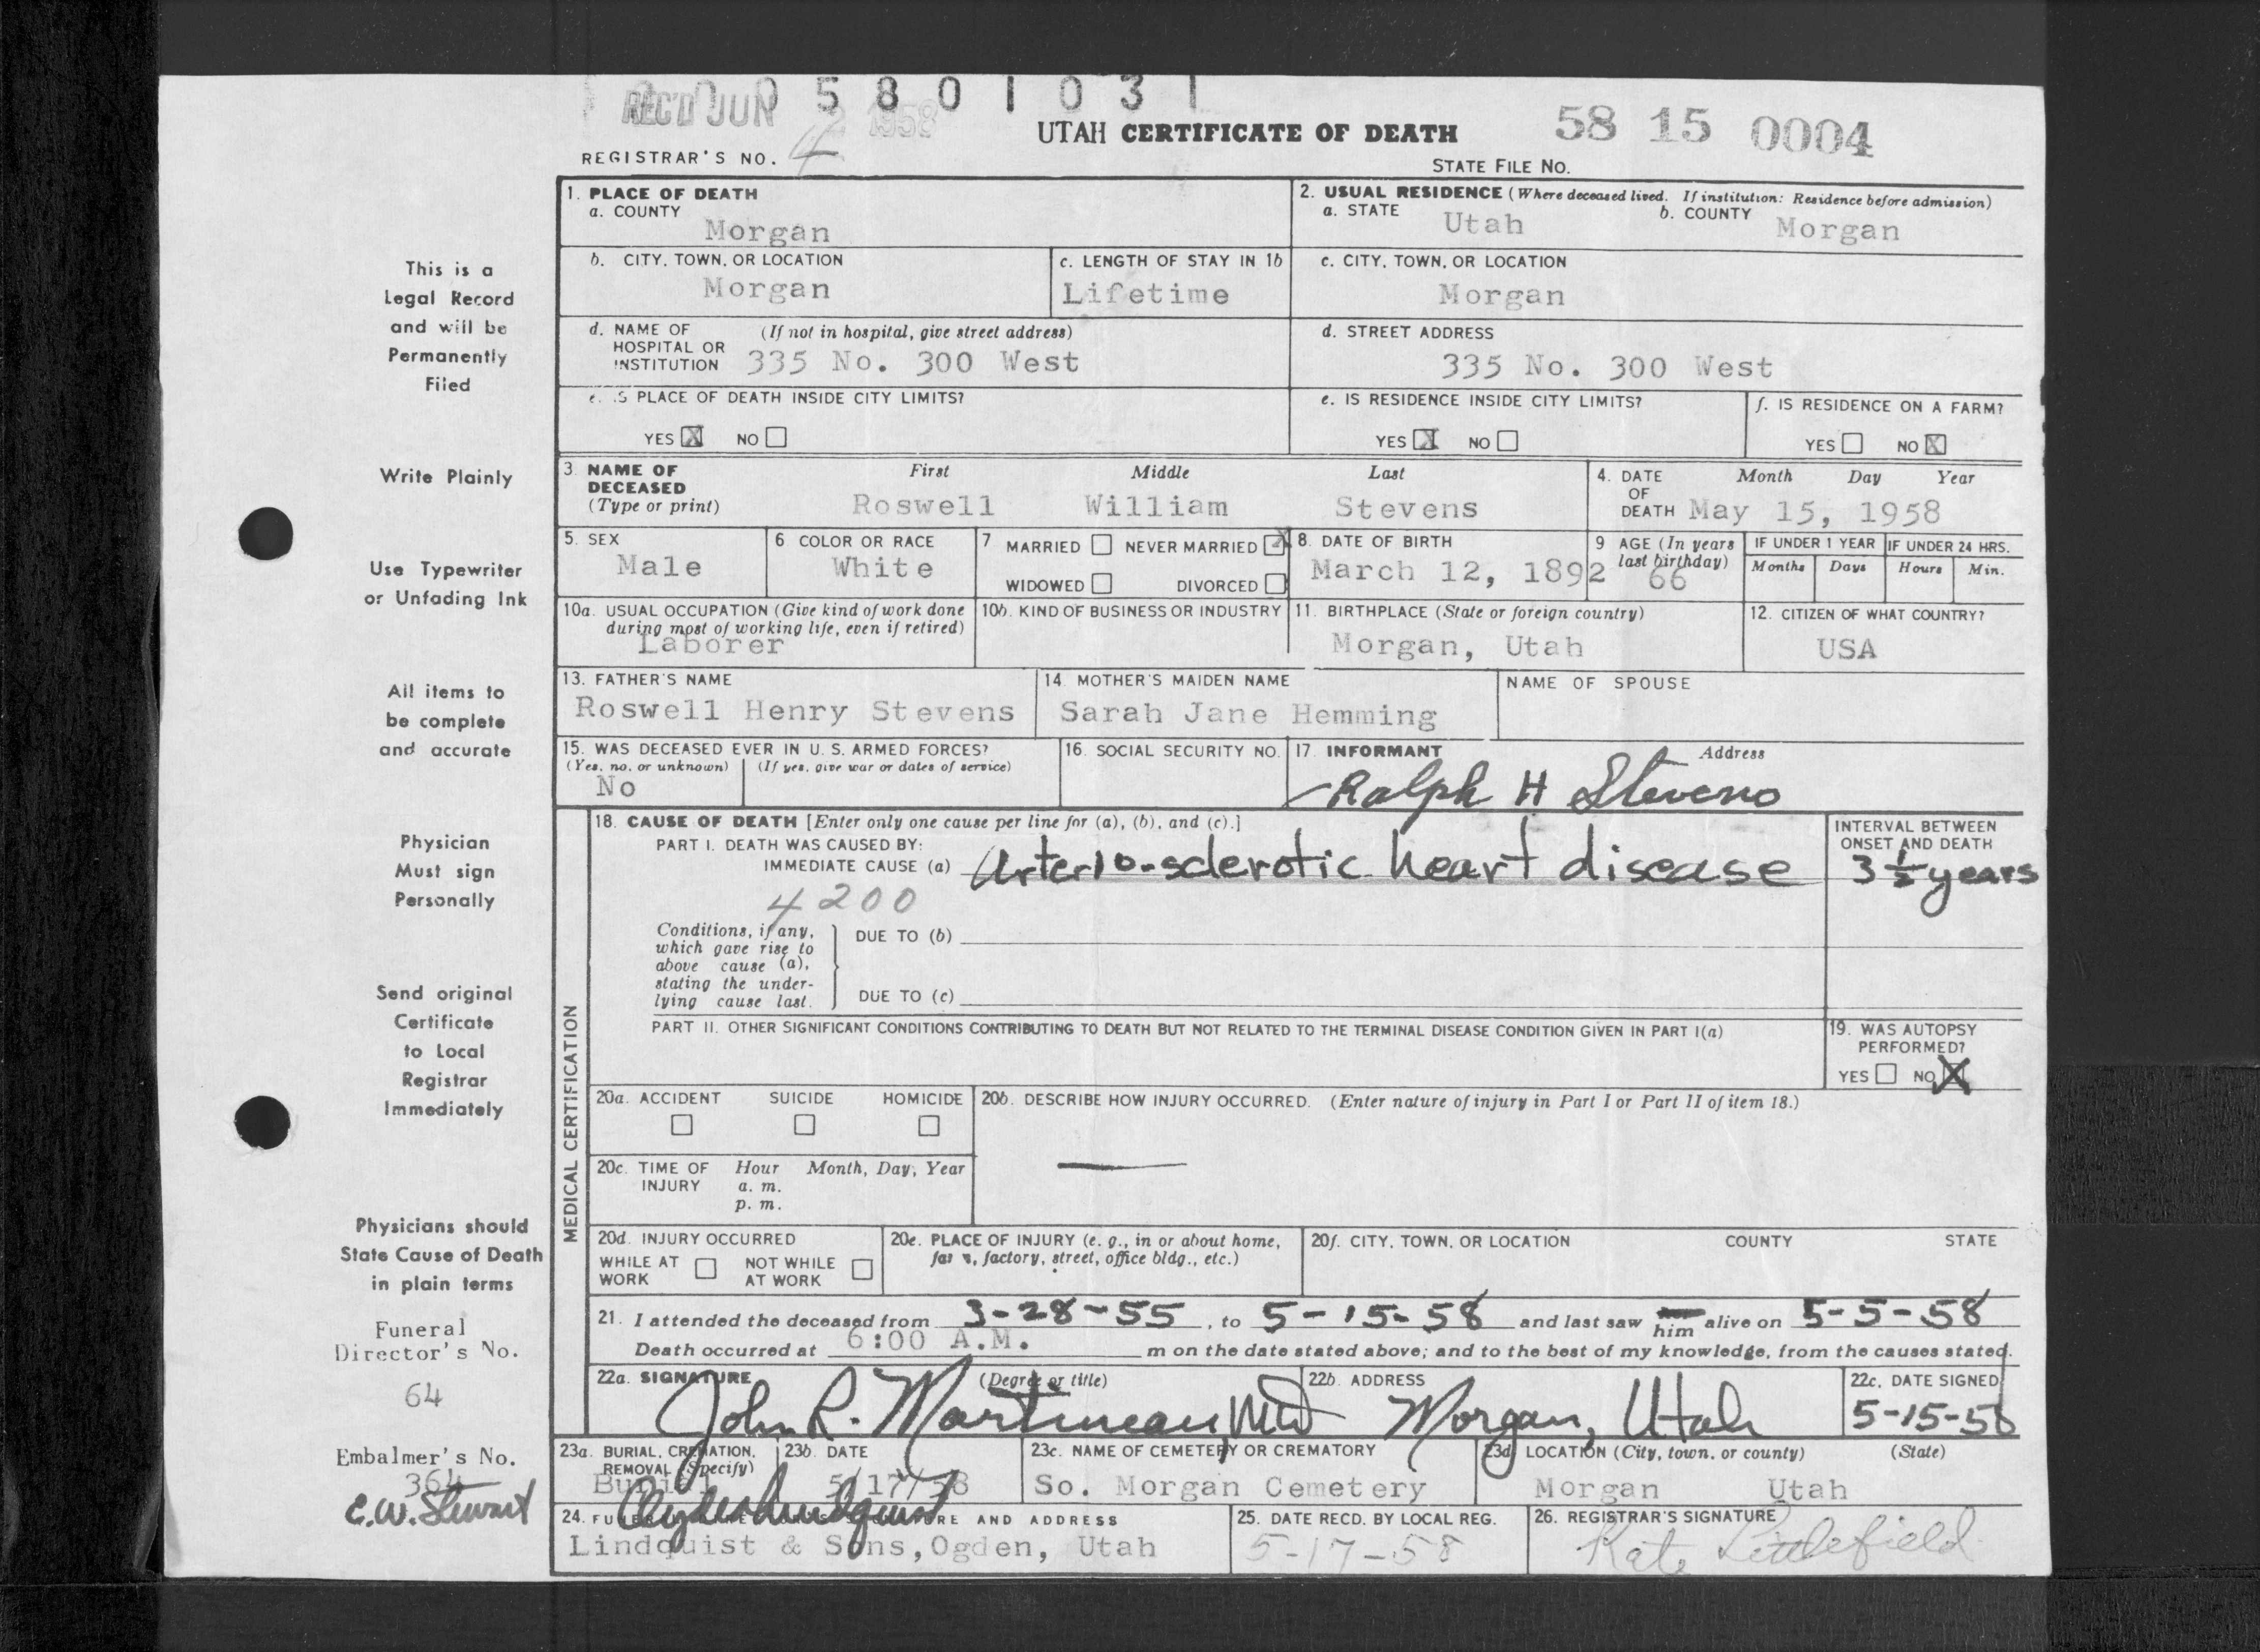 REC'D JUN 2 1958
5 8 0 1 0 3 1
UTAH CERTIFICATE OF DEATH
58 15 0004
REGISTRAR'S NO. 4
STATE FILE NO.
This is a
Legal Record
and will be
Permanently
Filed
Write Plainly
Use Typewriter
or Unfading Ink
All items to
be complete
and accurate
Physician
Must sign
Personally
Send original
Certificate
to Local
Registrar
Immediately
Physicians should
State Cause of Death
in plain terms
Funeral
Director's No.
64
Embalmer's No.
364
C.W. Stewart
1. PLACE OF DEATH
a. COUNTY
Morgan
2. USUAL RESIDENCE (Where deceased lived. If institution: Residence before admission)
a. STATE Utah b. COUNTY Morgan
b. CITY, TOWN, OR LOCATION
Morgan
c. LENGTH OF STAY IN 1b
Lifetime
c. CITY, TOWN, OR LOCATION
Morgan
d. NAME OF (If not in hospital, give street address)
HOSPITAL OR
INSTITUTION 335 No. 300 West
d. STREET ADDRESS
335 No. 300 West
e. IS PLACE OF DEATH INSIDE CITY LIMITS?
YES X NO
e. IS RESIDENCE INSIDE CITY LIMITS?
YES X NO
f. IS RESIDENCE ON A FARM?
YES NO X
3. NAME OF DECEASED (Type or print)
First Middle Last
Roswell William Stevens
4. DATE OF DEATH
Month Day Year
May 15, 1958
5. SEX
Male
6 COLOR OR RACE
White
7 MARRIED NEVER MARRIED X
WIDOWED DIVORCED
8. DATE OF BIRTH
March 12, 1892
9 AGE (In years
last birthday)
66
IF UNDER 1 YEAR
Months Days
IF UNDER 24 HRS.
Hours Min.
10a. USUAL OCCUPATION (Give kind of work done
during most of working life, even if retired)
Laborer
10b. KIND OF BUSINESS OR INDUSTRY
11. BIRTHPLACE (State or foreign country)
Morgan, Utah
12. CITIZEN OF WHAT COUNTRY?
USA
13. FATHER'S NAME
Roswell Henry Stevens
14. MOTHER'S MAIDEN NAME
Sarah Jane Hemming
NAME OF SPOUSE
15. WAS DECEASED EVER IN U. S. ARMED FORCES?
(Yes, no, or unknown) (If yes, give war or dates of service)
No
16. SOCIAL SECURITY NO.
17. INFORMANT Address
Ralph H Stevens
MEDICAL CERTIFICATION
18. CAUSE OF DEATH [Enter only one cause per line for (a), (b), and (c).]
PART I. DEATH WAS CAUSED BY:
IMMEDIATE CAUSE (a) Arterio-sclerotic heart disease
INTERVAL BETWEEN
ONSET AND DEATH
3 1/2 years
4200
Conditions, if any,
which gave rise to
above cause (a),
stating the under-
lying cause last.
DUE TO (b)
DUE TO (c)
PART II. OTHER SIGNIFICANT CONDITIONS CONTRIBUTING TO DEATH BUT NOT RELATED TO THE TERMINAL DISEASE CONDITION GIVEN IN PART I(a)
19. WAS AUTOPSY
PERFORMED?
YES NO X
20a. ACCIDENT SUICIDE HOMICIDE
20b. DESCRIBE HOW INJURY OCCURRED. (Enter nature of injury in Part I or Part II of item 18.)
20c. TIME OF INJURY
Hour Month, Day, Year
a. m.
p. m.
20d. INJURY OCCURRED
WHILE AT WORK NOT WHILE AT WORK
20e. PLACE OF INJURY (e. g., in or about home,
farm, factory, street, office bldg., etc.)
20f. CITY, TOWN, OR LOCATION COUNTY STATE
21. I attended the deceased from 3-28-55, to 5-15-58 and last saw him alive on 5-5-58
Death occurred at 6:00 A.M. m on the date stated above; and to the best of my knowledge, from the causes stated.
22a. SIGNATURE (Degree or title)
John R. Martineau, MD
22b. ADDRESS
Morgan, Utah
22c. DATE SIGNED
5-15-58
23a. BURIAL, CREMATION,
REMOVAL (Specify)
Burial
23b. DATE
5/17/58
23c. NAME OF CEMETERY OR CREMATORY
So. Morgan Cemetery
23d. LOCATION (City, town, or county) (State)
Morgan Utah
24. FUNERAL DIRECTOR'S SIGNATURE AND ADDRESS
Clyde Lindquist
Lindquist & Sons, Ogden, Utah
25. DATE RECD. BY LOCAL REG.
5-17-58
26. REGISTRAR'S SIGNATURE
Kate Littlefield